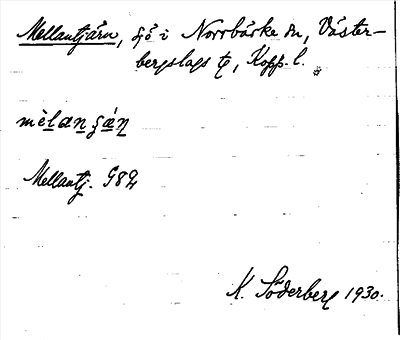 Mellantjärn, sjö i Norrbärke sn, Väster-
bergslags tg, Kopp. l.
mèlanʂán
Mellantj. G82
K. Söderberg 1930.